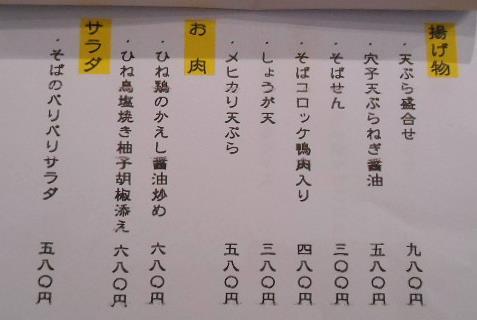 揚げ物
・天ぷら盛合せ 九八〇円
・穴子天ぷらねぎ醤油 五八〇円
・そばせん 三〇〇円
・そばコロッケ鴨肉入り 四八〇円
・しょうが天 三八〇円
・メヒカリ天ぷら 五八〇円
お肉
・ひね鶏のかえし醤油炒め 六八〇円
・ひね鳥塩焼き柚子胡椒添え 六八〇円
サラダ
・そばのパリパリサラダ 五八〇円